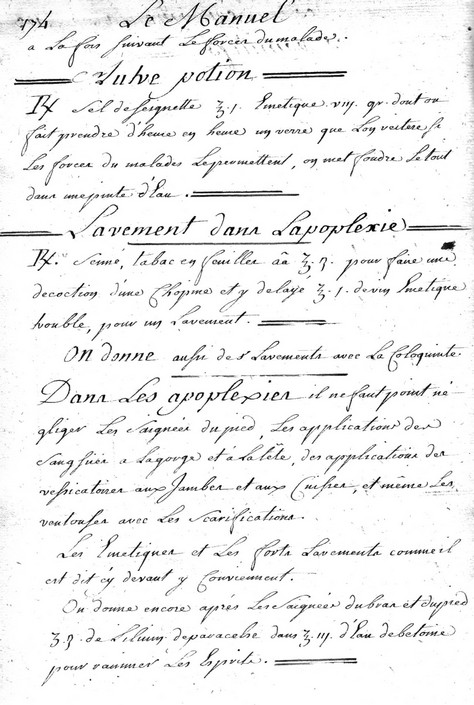 174 Le Manuel
a La fois suivant Les forces du malade.
Autre potion
℞ Sel de Seignette ʒ.1. Emetique viii. gr. dont on
fait prendre d'heure en heure un verre que L'on reitere si
Les forces du malades Le permettent, on met fondre Le tout
dans une pinte d'Eau.
Lavement dans Lapoplexie
℞. Senné, tabac en feuilles āā ʒ.3. pour faire une
decoction d'une Chopine et y delayé ʒ.1. de vin Emetique
trouble, pour un Lavement.
On donne aussi des Lavements avec La Coloquinte
Dans Les apoplexies il ne faut point né-
gliger Les Saignées du pied, Les applications des
Sangsües a La gorge et à La tête, des applications des
vessicatoires aux Jambes et aux Cuisses, et même Les
ventouses avec Les Scarifications.
Les Emetiques et Les forts Lavements comme il
est dit cy devant y Conviennent.
On donne encore après Les Saignées du bras et du pied
ʒ.3. de Lilium de paracelse dans ʒ.iii. d'Eau de betoine
pour ranimer Les Esprits.